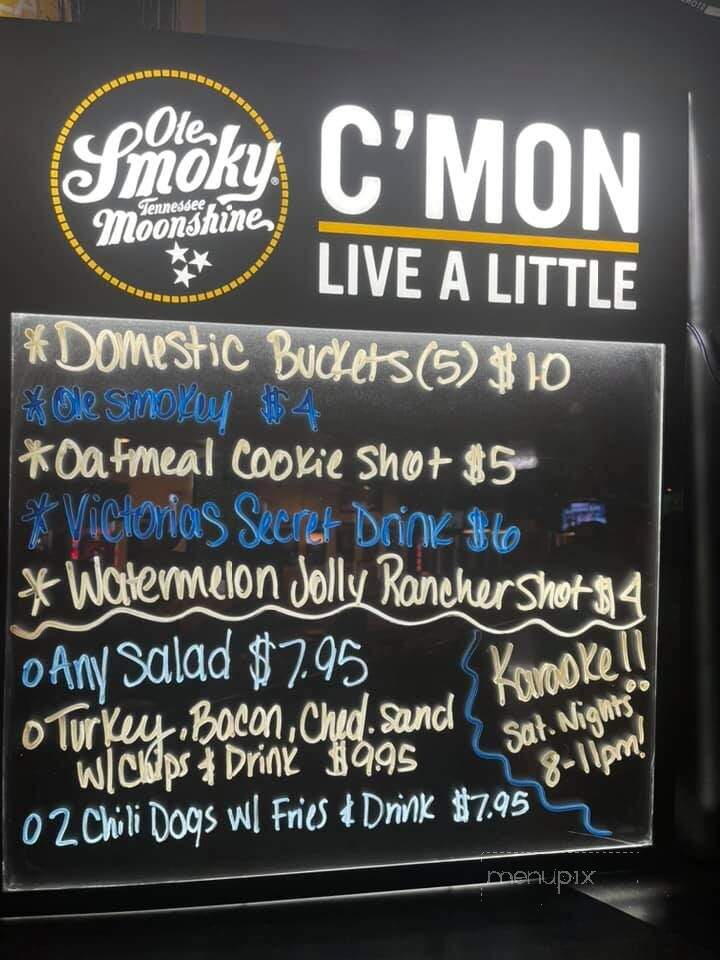 Ole
Smoky
Tennessee
Moonshine
C'MON
LIVE A LITTLE
* Domestic Buckets (5) $10
* Ole Smokey $4
* Oatmeal Cookie Shot $5
* Victorias Secret Drink $6
* Watermelon Jolly Rancher Shot $4
o Any Salad $7.95
o Turkey, Bacon, Ched. Sand
w/ Chips & Drink $9.95
o 2 Chili Dogs w/ Fries & Drink $7.95
Karaoke!!
Sat. Nights
8-11pm!
menupix